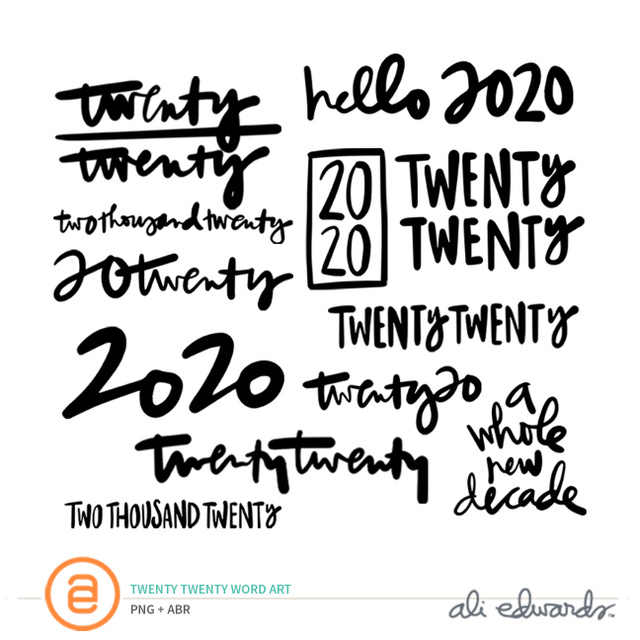 twenty
twenty
twothousandtwenty
20twenty
2020
twentytwenty
TWO THOUSAND TWENTY
hello 2020
20
20
TWENTY
TWENTY
TWENTYTWENTY
twenty20
a
whole
new
decade
a
TWENTY TWENTY WORD ART
PNG + ABR
ali edwards™